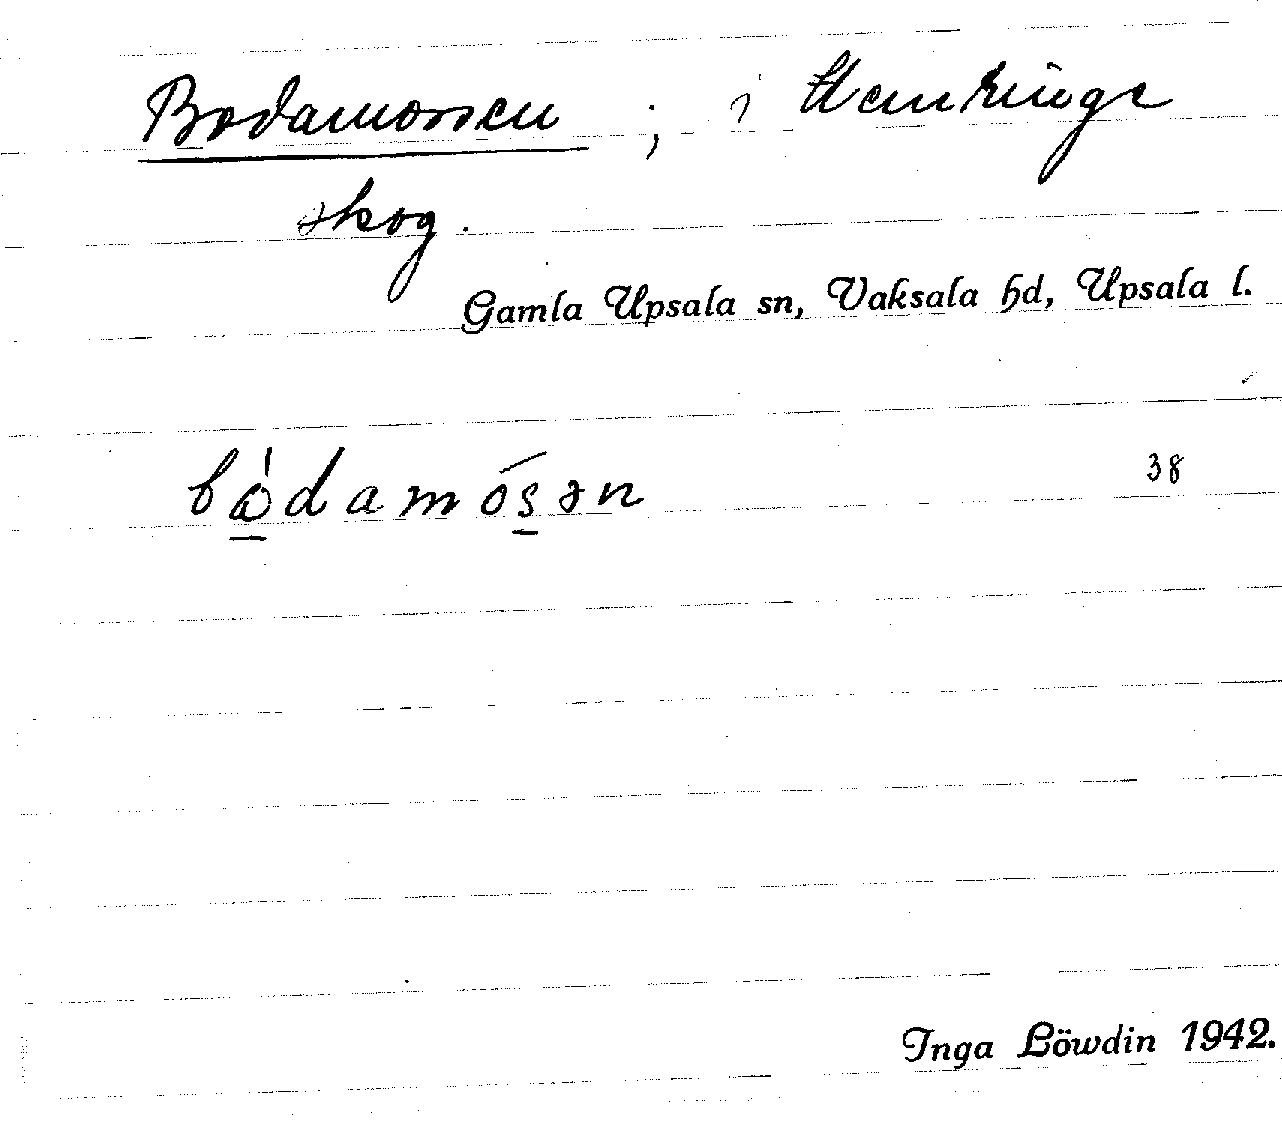 Bodamossen ; i Hemringe
skog.
Gamla Upsala sn, Vaksala hd, Upsala l.
bòdamósən 38
Inga Löwdin 1942.